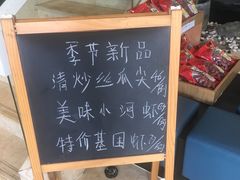 季节新品
清炒丝瓜尖
美味小河虾
特价基围虾